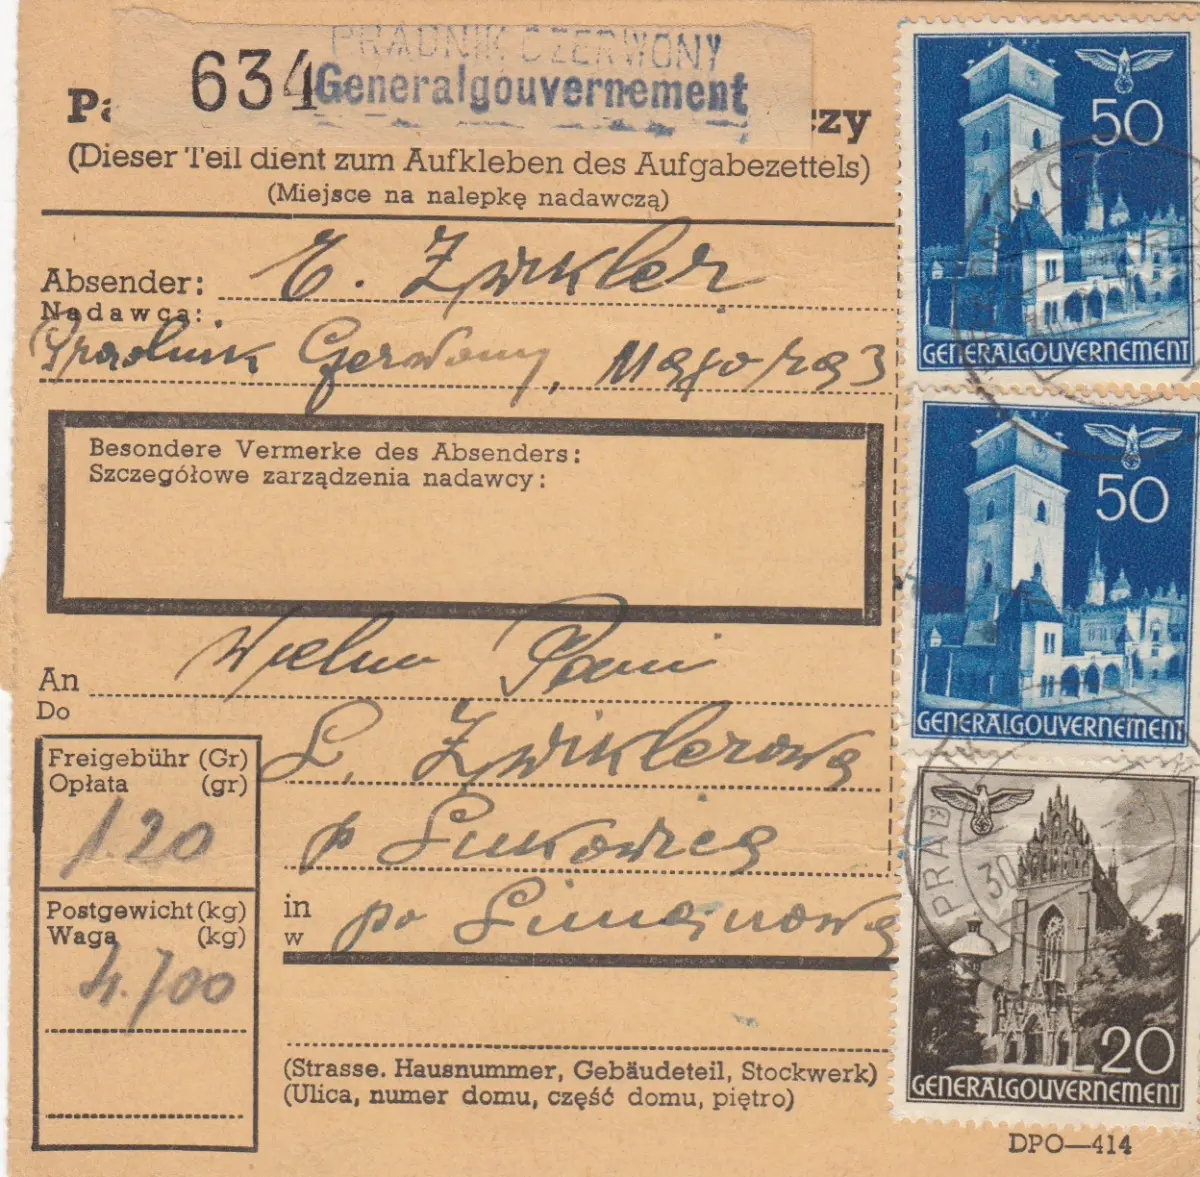 PRĄDNIK CZERWONY
634 Generalgouvernement
Pa czy
(Dieser Teil dient zum Aufkleben des Aufgabezettels)
(Miejsce na nalepkę nadawczą)
Absender: E. Zwikler
Nadawca:
Pradnik Czerwony, Magorza 3
Besondere Vermerke des Absenders:
Szczegółowe zarządzenia nadawcy:
An Wielm Pani
Do
L. Zwiklerowa
p Łukowica
in po Limanowa
w
Freigebühr (Gr)
Opłata (gr)
120
Postgewicht (kg)
Waga (kg)
4.700
(Strasse. Hausnummer, Gebäudeteil, Stockwerk)
(Ulica, numer domu, część domu, piętro)
DPO—414
50
GENERALGOUVERNEMENT
50
GENERALGOUVERNEMENT
PRĄDNIK
30
20
GENERALGOUVERNEMENT